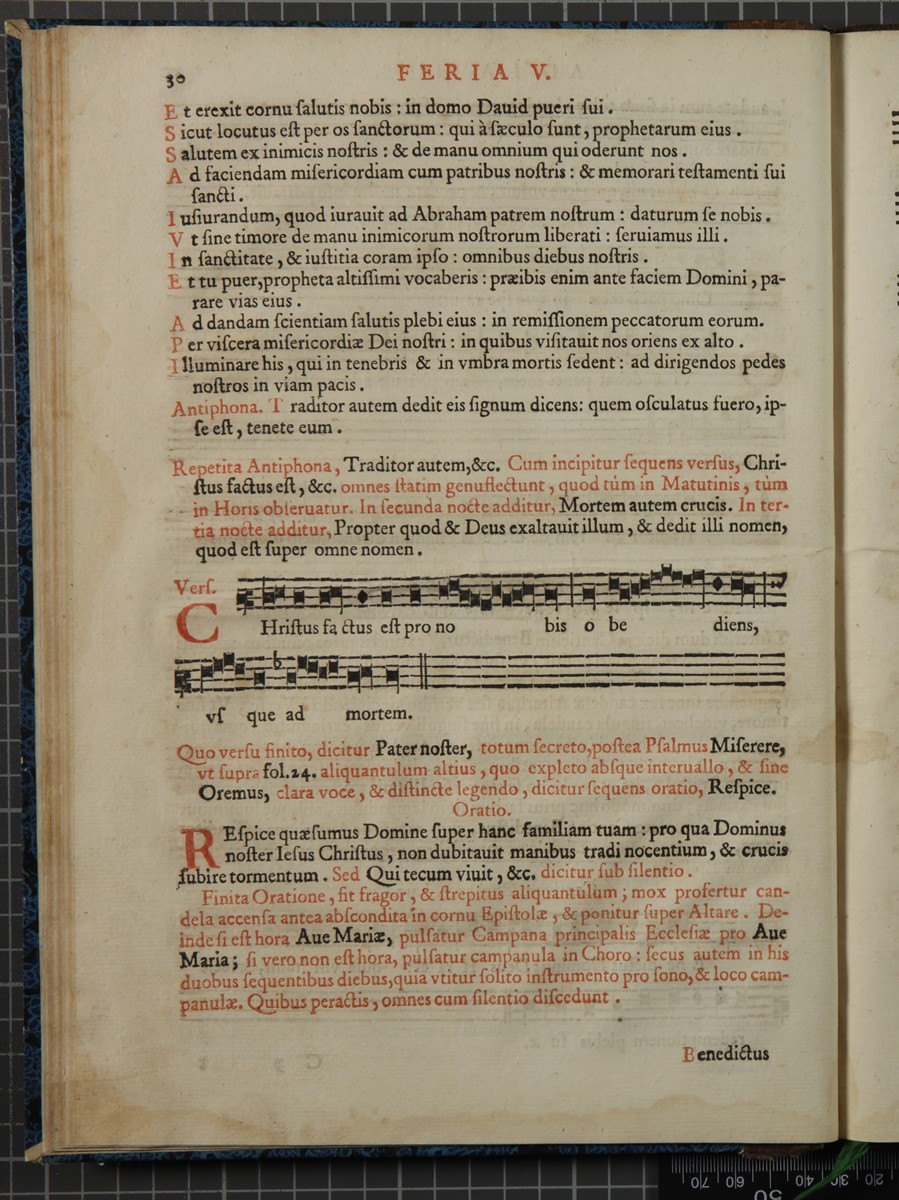 30 FERIA V.
Et erexit cornu ſalutis nobis : in domo Dauid pueri ſui .
Sicut locutus eſt per os ſanctorum : qui à ſæculo ſunt , prophetarum eius .
Salutem ex inimicis noſtris : & de manu omnium qui oderunt nos .
Ad faciendam miſericordiam cum patribus noſtris : & memorari teſtamenti ſui
ſancti .
Iuſiurandum, quod iurauit ad Abraham patrem noſtrum : daturum ſe nobis .
Vt ſine timore de manu inimicorum noſtrorum liberati : ſeruiamus illi .
In ſanctitate , & iuſtitia coram ipſo : omnibus diebus noſtris .
Et tu puer,propheta altiſſimi vocaberis : præibis enim ante faciem Domini , pa-
rare vias eius .
Ad dandam ſcientiam ſalutis plebi eius : in remiſſionem peccatorum eorum.
Per viſcera miſericordiæ Dei noſtri : in quibus viſitauit nos oriens ex alto .
Illuminare his , qui in tenebris & in vmbra mortis ſedent : ad dirigendos pedes
noſtros in viam pacis .
Antiphona. Traditor autem dedit eis ſignum dicens: quem oſculatus fuero, ip-
ſe eſt , tenete eum .
Repetita Antiphona, Traditor autem,&c. Cum incipitur ſequens verſus, Chri-
ſtus factus eſt , &c. omnes ſtatim genuflectunt , quod tùm in Matutinis , tùm
in Horis obſeruatur. In ſecunda nocte additur, Mortem autem crucis. In ter-
tia nocte additur, Propter quod & Deus exaltauit illum , & dedit illi nomen,
quod eſt ſuper omne nomen .
Verſ.
CHriſtus fa ctus eſt pro no bis o be diens,
vſ que ad mortem.
Quo verſu finito, dicitur Pater noſter, totum ſecreto,poſtea Pſalmus Miſerere,
vt ſupra fol.24. aliquantulum altius , quo expleto abſque interuallo , & ſine
Oremus, clara voce , & diſtincte legendo , dicitur ſequens oratio, Reſpice.
Oratio.
REſpice quæſumus Domine ſuper hanc familiam tuam : pro qua Dominus
noſter Ieſus Chriſtus , non dubitauit manibus tradi nocentium , & crucis
ſubire tormentum . Sed Qui tecum viuit , &c. dicitur ſub ſilentio .
Finita Oratione , fit fragor , & ſtrepitus aliquantulùm ; mox profertur can-
dela accenſa antea abſcondita in cornu Epiſtolæ , & ponitur ſuper Altare . De-
inde ſi eſt hora Aue Mariæ, pulſatur Campana principalis Eccleſiæ pro Aue
Maria; ſi vero non eſt hora, pulſatur campanula in Choro : ſecus autem in his
duobus ſequentibus diebus,quia vtitur ſolito inſtrumento pro ſono,& loco cam-
panulæ. Quibus peractis , omnes cum ſilentio diſcedunt .
Benedictus
70 60 50 40 30 20